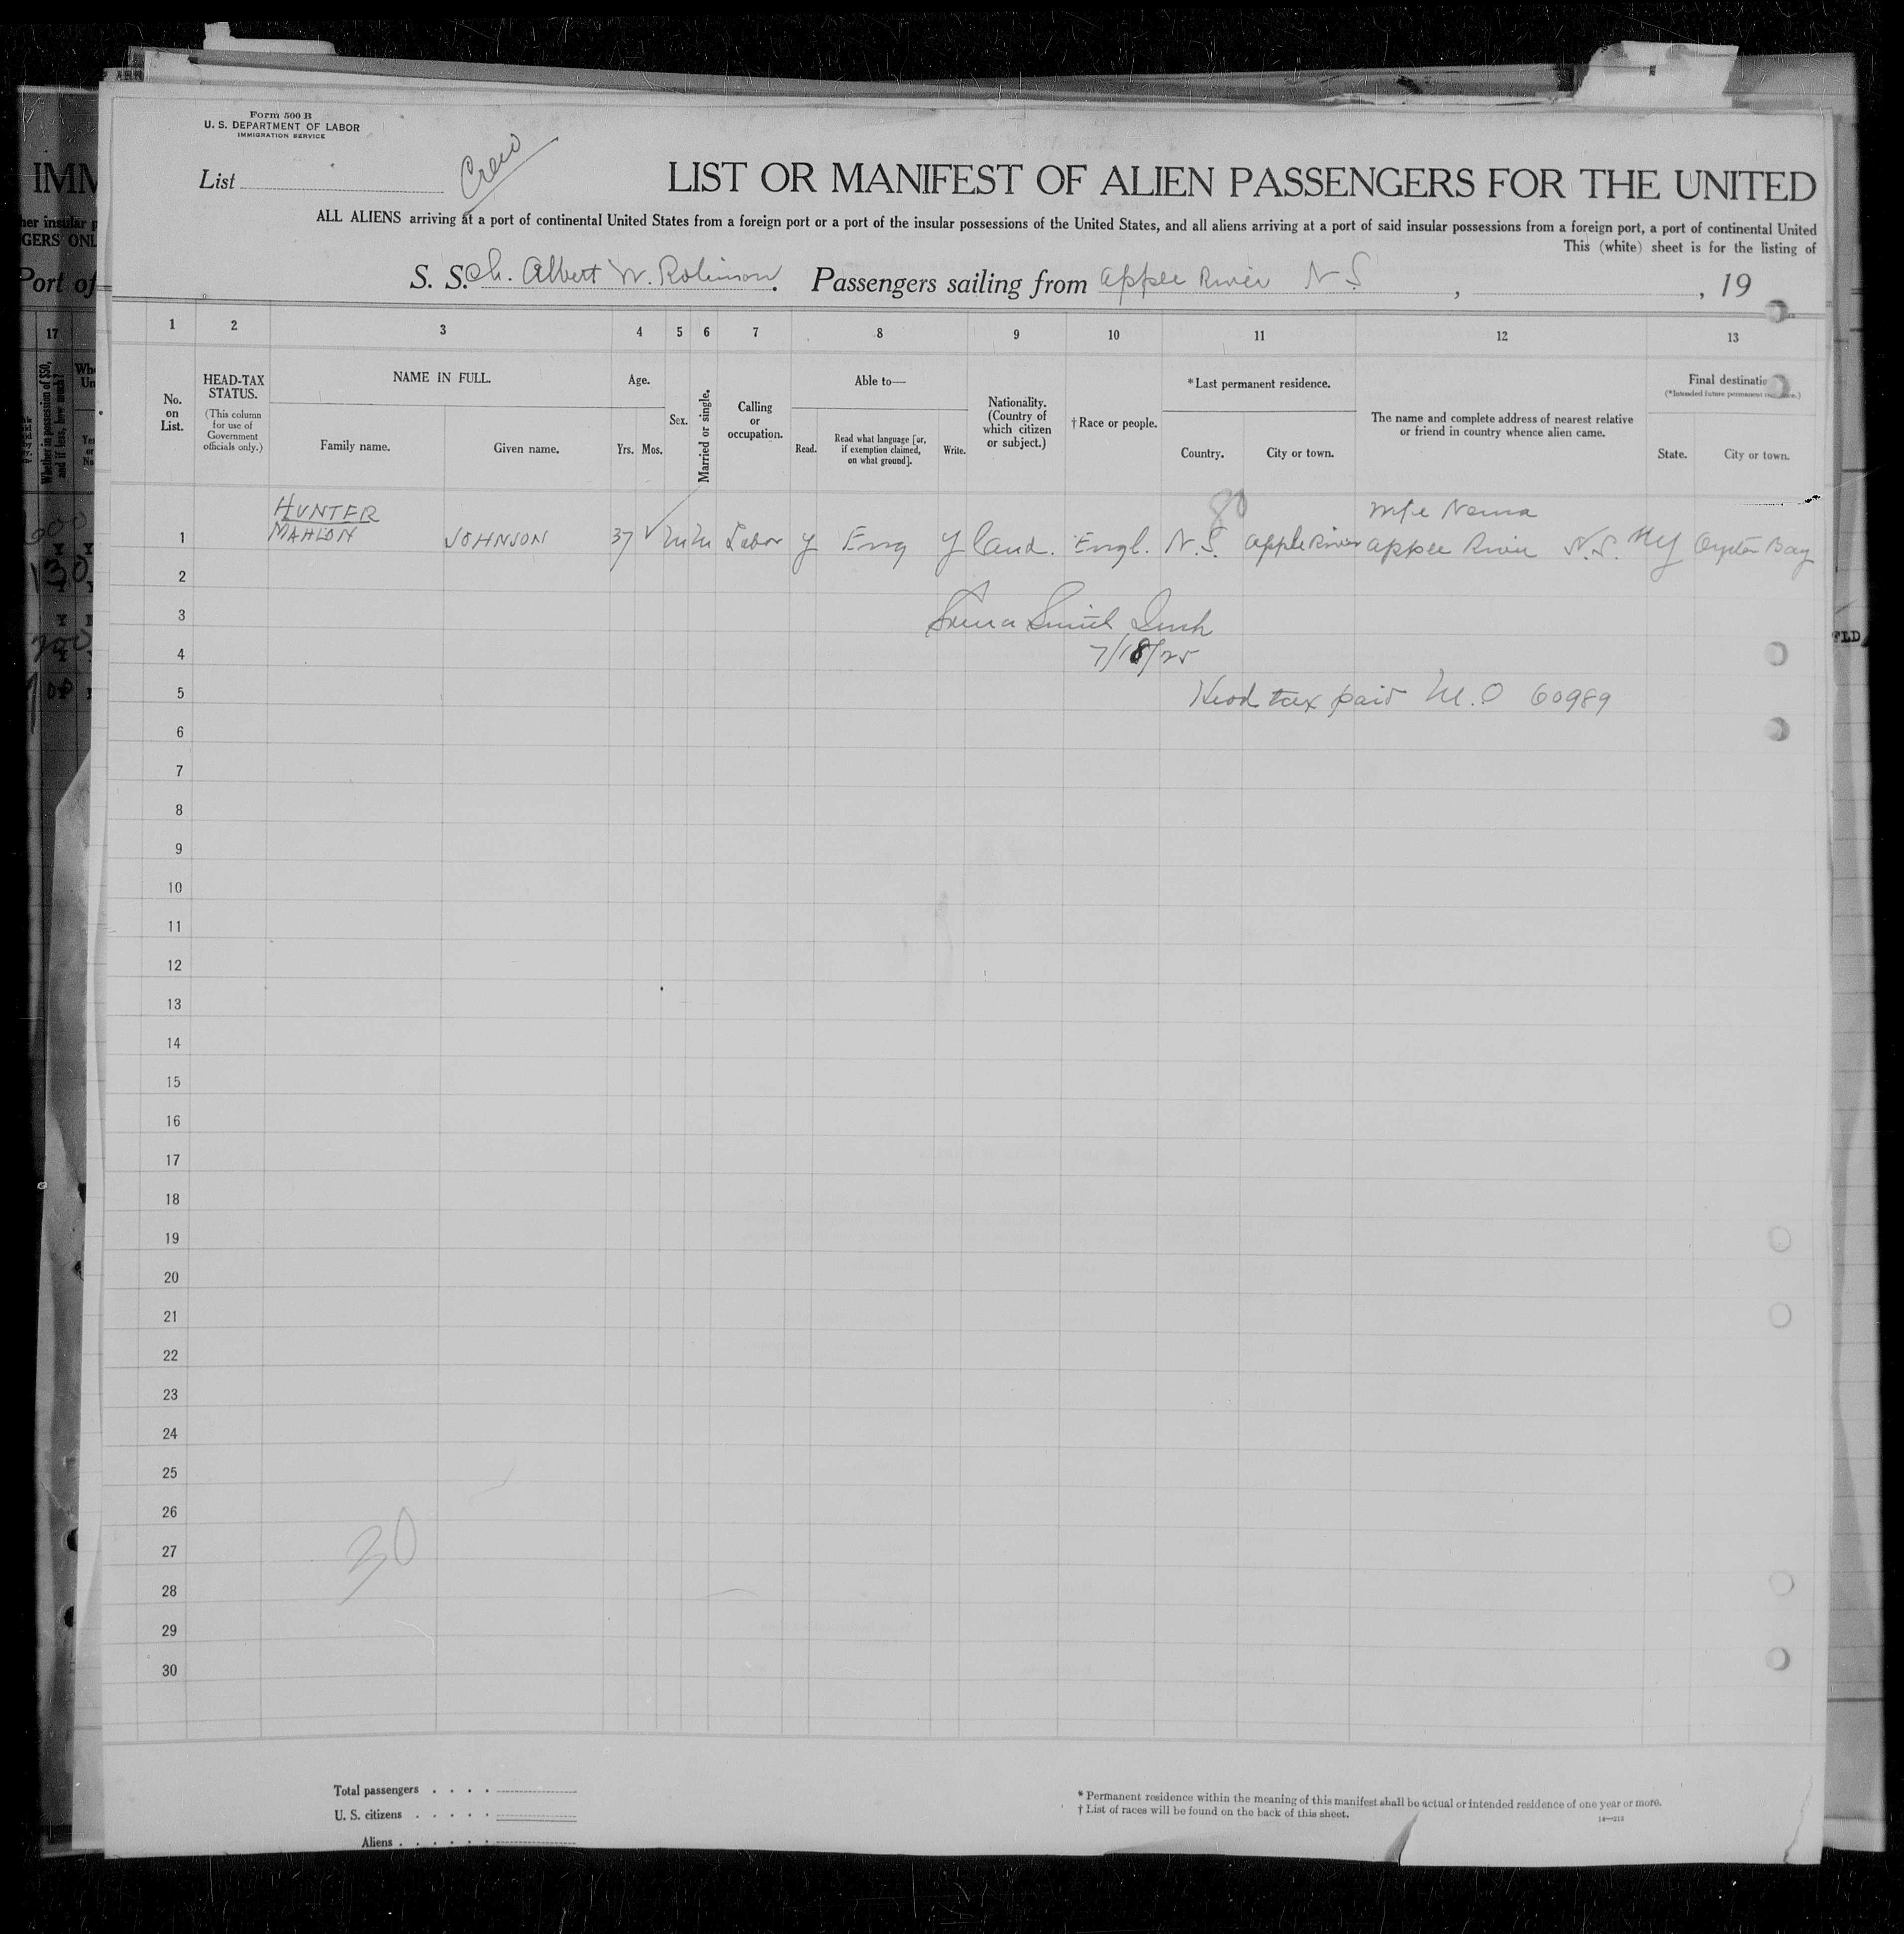 Form 500 B
U. S. DEPARTMENT OF LABOR
IMMIGRATION SERVICE
List
Crew
LIST OR MANIFEST OF ALIEN PASSENGERS FOR THE UNITED
ALL ALIENS arriving at a port of continental United States from a foreign port or a port of the insular possessions of the United States, and all aliens arriving at a port of said insular possessions from a foreign port, a port of continental United
This (white) sheet is for the listing of
S. S. Sch. Albert W. Robinson. Passengers sailing from Apple River N S , , 19
1 2 3 4 5 6 7 8 9 10 11 12 13
No. on List.
HEAD-TAX STATUS.
(This column for use of Government officials only.)
NAME IN FULL.
Family name. Given name.
Age.
Yrs. Mos.
Sex.
Married or single.
Calling or occupation.
Able to—
Read. Read what language [or, if exemption claimed, on what ground]. Write.
Nationality. (Country of which citizen or subject.)
† Race or people.
*Last permanent residence.
Country. City or town.
The name and complete address of nearest relative or friend in country whence alien came.
Final destination
(*Intended future permanent residence.)
State. City or town.
80
HUNTER wife
1 MAHLON JOHNSON 37 M M Labor y Eng y Cand. Engl. N.S. Apple River Apple River N.S. NY Oyster Bay
2
3
4 7/18/25
5 Head tax paid M.O 60989
6
7
8
9
10
11
12
13
14
15
16
17
18
19
20
21
22
23
24
25
26
27
30
28
29
30
Total passengers . . . .
U. S. citizens . . . . .
Aliens . . . . . .
* Permanent residence within the meaning of this manifest shall be actual or intended residence of one year or more.
† List of races will be found on the back of this sheet.
IMM
GERS ONL
Port of
17
Whether in possession of $50, and if less, how much?
FLD